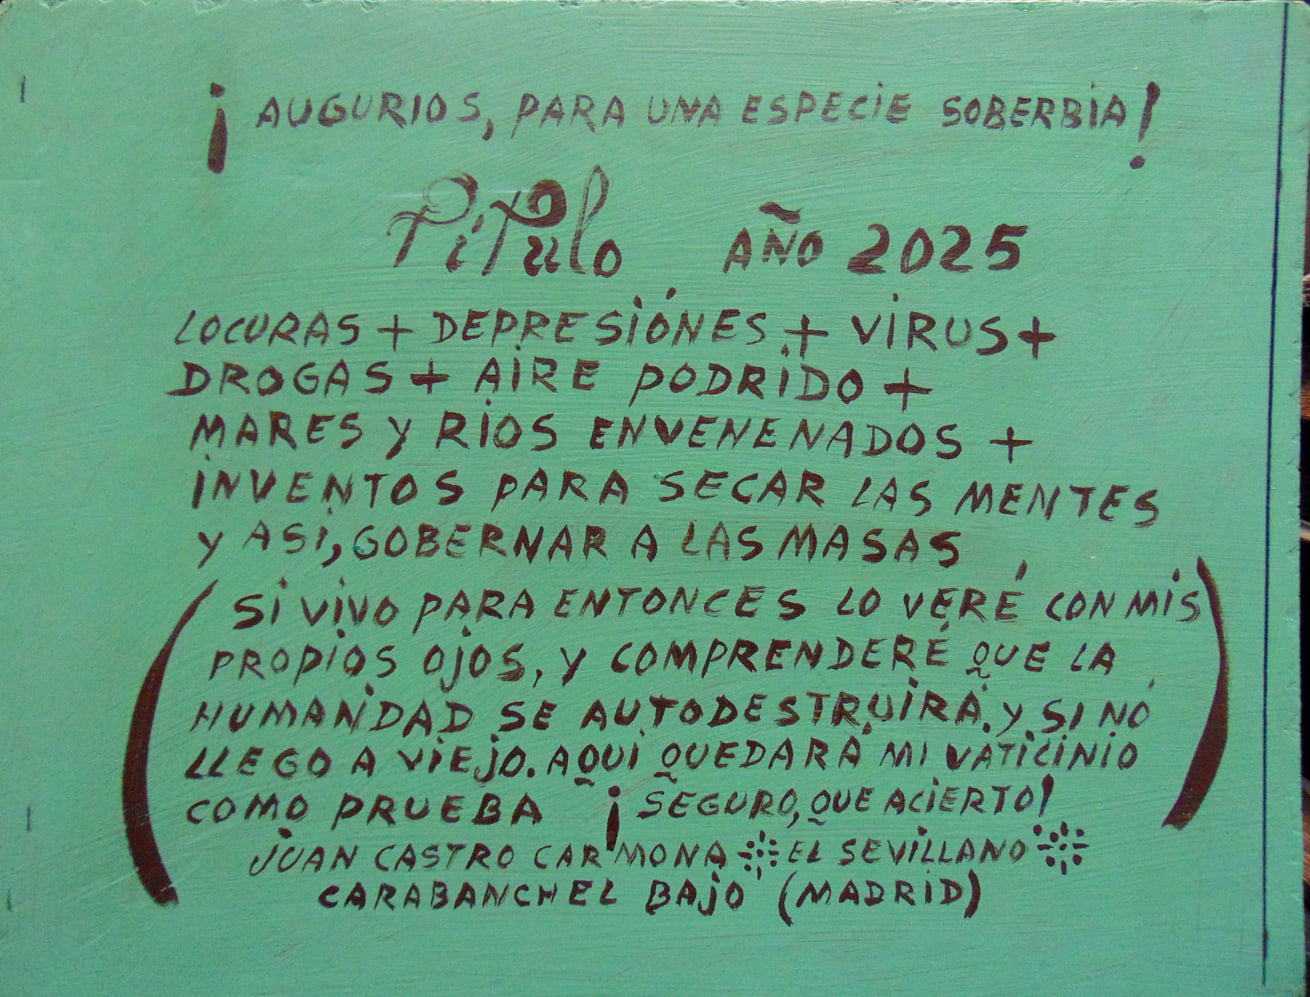 ¡AUGURIOS, PARA UNA ESPECIE SOBERBIA!
Título AÑO 2025
LOCURAS + DEPRESIÓNES + VIRUS +
DROGAS + AIRE PODRIDO +
MARES Y RIOS ENVENENADOS +
INVENTOS PARA SECAR LAS MENTES
Y ASI, GOBERNAR A LAS MASAS
(SI VIVO PARA ENTONCES LO VERÉ CON MIS
PROPIOS OJOS, Y COMPRENDERÉ QUE LA
HUMANIDAD SE AUTODESTRUIRÁ. Y SI NO
LLEGO A VIEJO. AQUÍ QUEDARÁ MI VATICINIO
COMO PRUEBA ¡SEGURO, QUE ACIERTO!)
JUAN CASTRO CARMONA EL SEVILLANO
CARABANCHEL BAJO (MADRID)